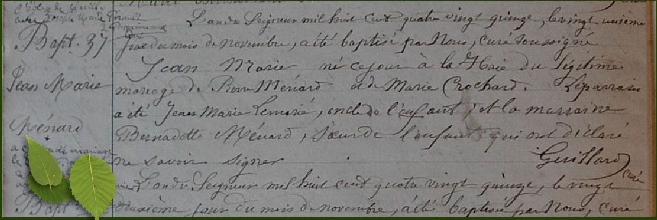 Bapt. 37
Jean Marie
Ménard
L'an du Seigneur mil huit cent quatre vingt quinze, le vingt unième
jour du mois de novembre, a été baptisé par Nous, curé soussigné
Jean Marie né ce jour à la Haie du légitime
mariage de Pierre Ménard et de Marie Crochard. Le parrain
a été Jean Marie, oncle de l'enfant, et la marraine
Bernadette Ménard, sœur de l'enfant qui ont déclaré
ne savoir signer
Guillard
curé
L'an du Seigneur mil huit cent quatre vingt quinze, le vingt
jour du mois de novembre, a été baptisé par Nous, curé
Bapt